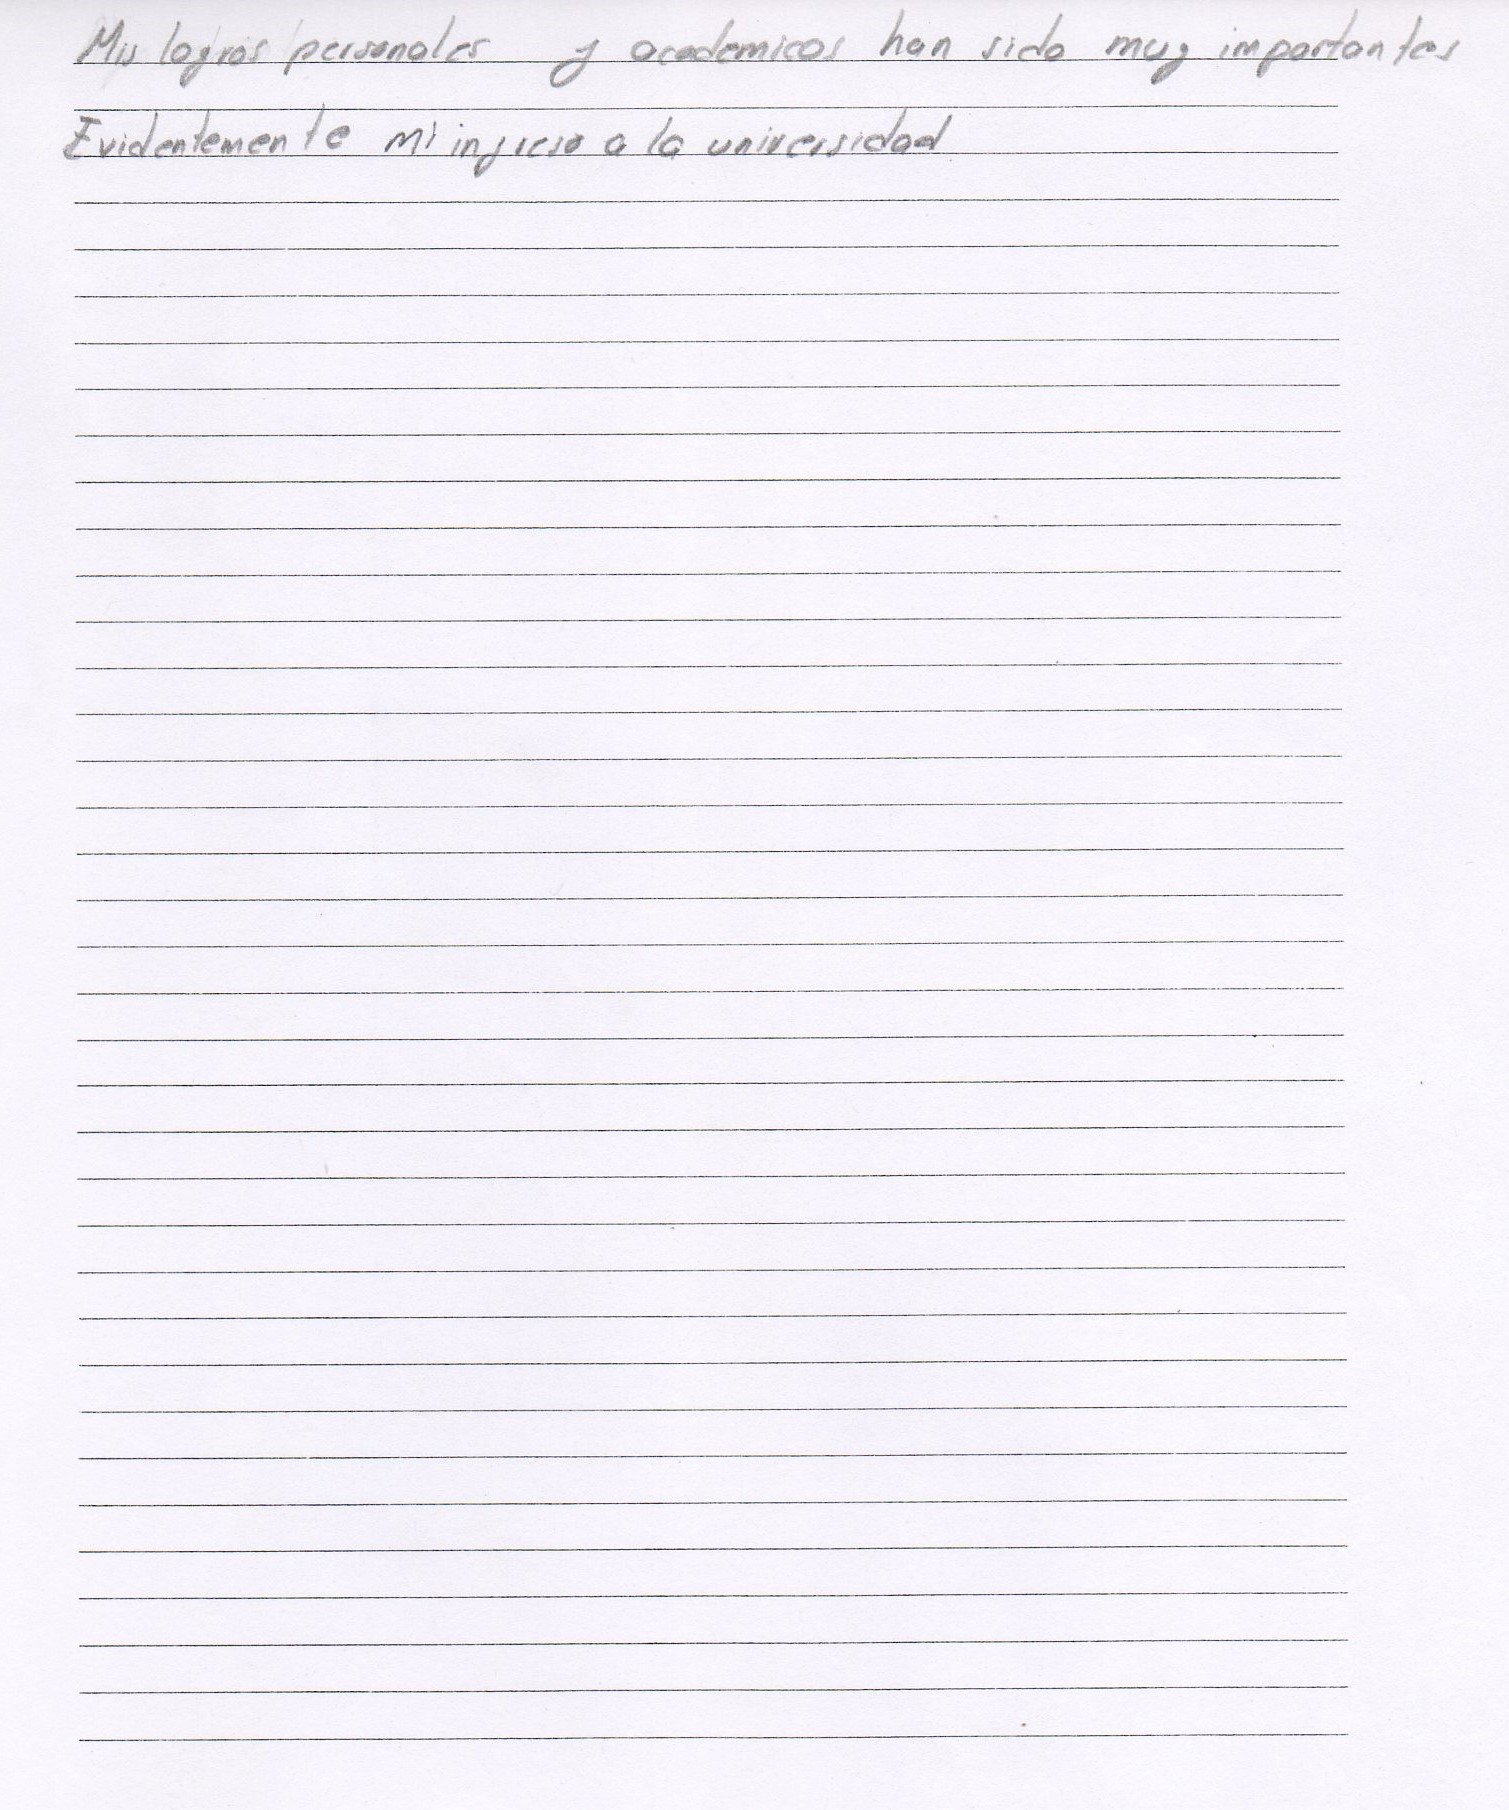 Mis logros personales y academicos han sido muy importantes
Evidentemente mi ingreso a la universidad